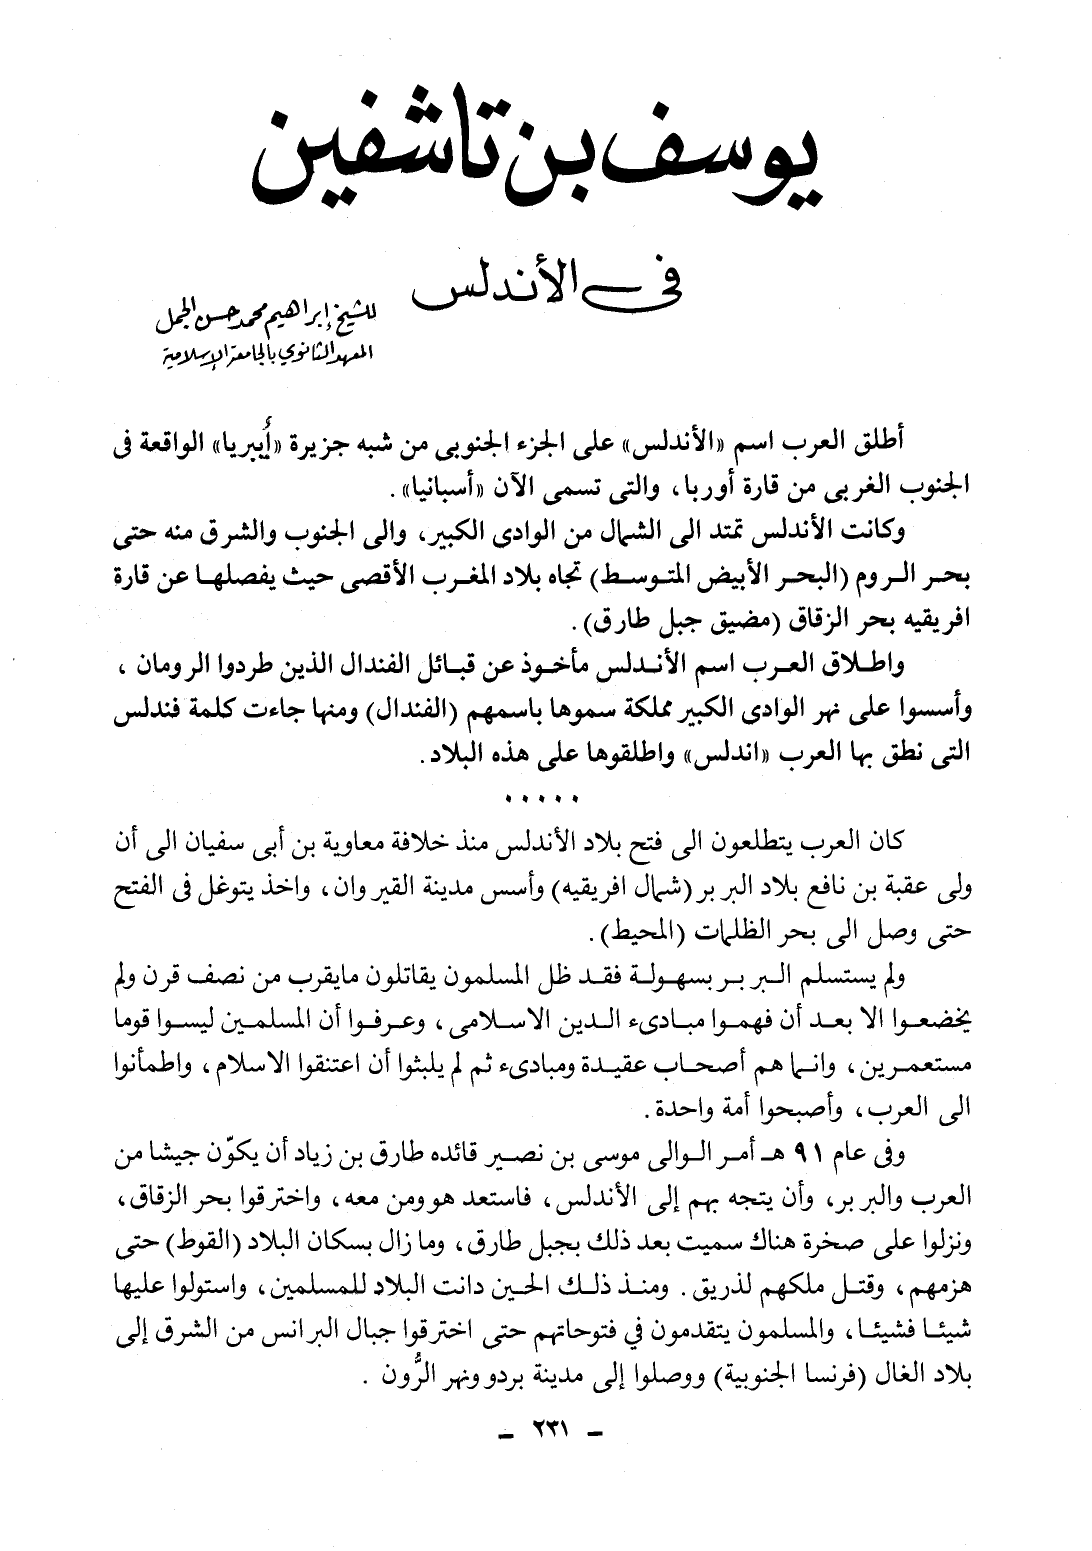 يوسف بن تاشفين
في الأندلس
للشيخ إبراهيم محمد حسن الجمل
المعهد الثانوي بالجامعة الإسلامية
أطلق العرب اسم «الأندلس» على الجزء الجنوبى من شبه جزيرة «أُيبريا» الواقعة فى
الجنوب الغربى من قارة أوربا، والتى تسمى الآن «أسبانيا».
وكانت الأندلس تمتد الى الشمال من الوادى الكبير، والى الجنوب والشرق منه حتى
بحر الروم (البحر الأبيض المتوسط) تجاه بلاد المغرب الأقصى حيث يفصلها عن قارة
افريقيه بحر الزقاق (مضيق جبل طارق).
واطلاق العرب اسم الأندلس مأخوذ عن قبائل الفندال الذين طردوا الرومان ،
وأسسوا على نهر الوادى الكبير مملكة سموها باسمهم (الفندال) ومنها جاءت كلمة فندلس
التى نطق بها العرب «اندلس» واطلقوها على هذه البلاد.
• • • • •
كان العرب يتطلعون الى فتح بلاد الأندلس منذ خلافة معاوية بن أبى سفيان الى أن
ولى عقبة بن نافع بلاد البربر (شمال افريقيه) وأسس مدينة القيروان، واخذ يتوغل فى الفتح
حتى وصل الى بحر الظلمات (المحيط).
ولم يستسلم البربر بسهولة فقد ظل المسلمون يقاتلون مايقرب من نصف قرن ولم
يخضعوا الا بعد أن فهموا مبادىء الدين الاسلامى، وعرفوا أن المسلمين ليسوا قوما
مستعمرين، وانما هم أصحاب عقيدة ومبادىء ثم لم يلبثوا أن اعتنقوا الاسلام، واطمأنوا
الى العرب، وأصبحوا أمة واحدة.
وفى عام ٩١ هـ أمر الوالى موسى بن نصير قائده طارق بن زياد أن يكوّن جيشا من
العرب والبربر، وأن يتجه بهم إلى الأندلس، فاستعد هو ومن معه، واخترقوا بحر الزقاق،
ونزلوا على صخرة هناك سميت بعد ذلك بجبل طارق، وما زال بسكان البلاد (القوط) حتى
هزمهم، وقتل ملكهم لذريق. ومنذ ذلك الحين دانت البلاد للمسلمين، واستولوا عليها
شيئا فشيئا، والمسلمون يتقدمون في فتوحاتهم حتى اخترقوا جبال البرانس من الشرق إلى
بلاد الغال (فرنسا الجنوبية) ووصلوا إلى مدينة بردو ونهر الرُّون .
– ٢٣١ –